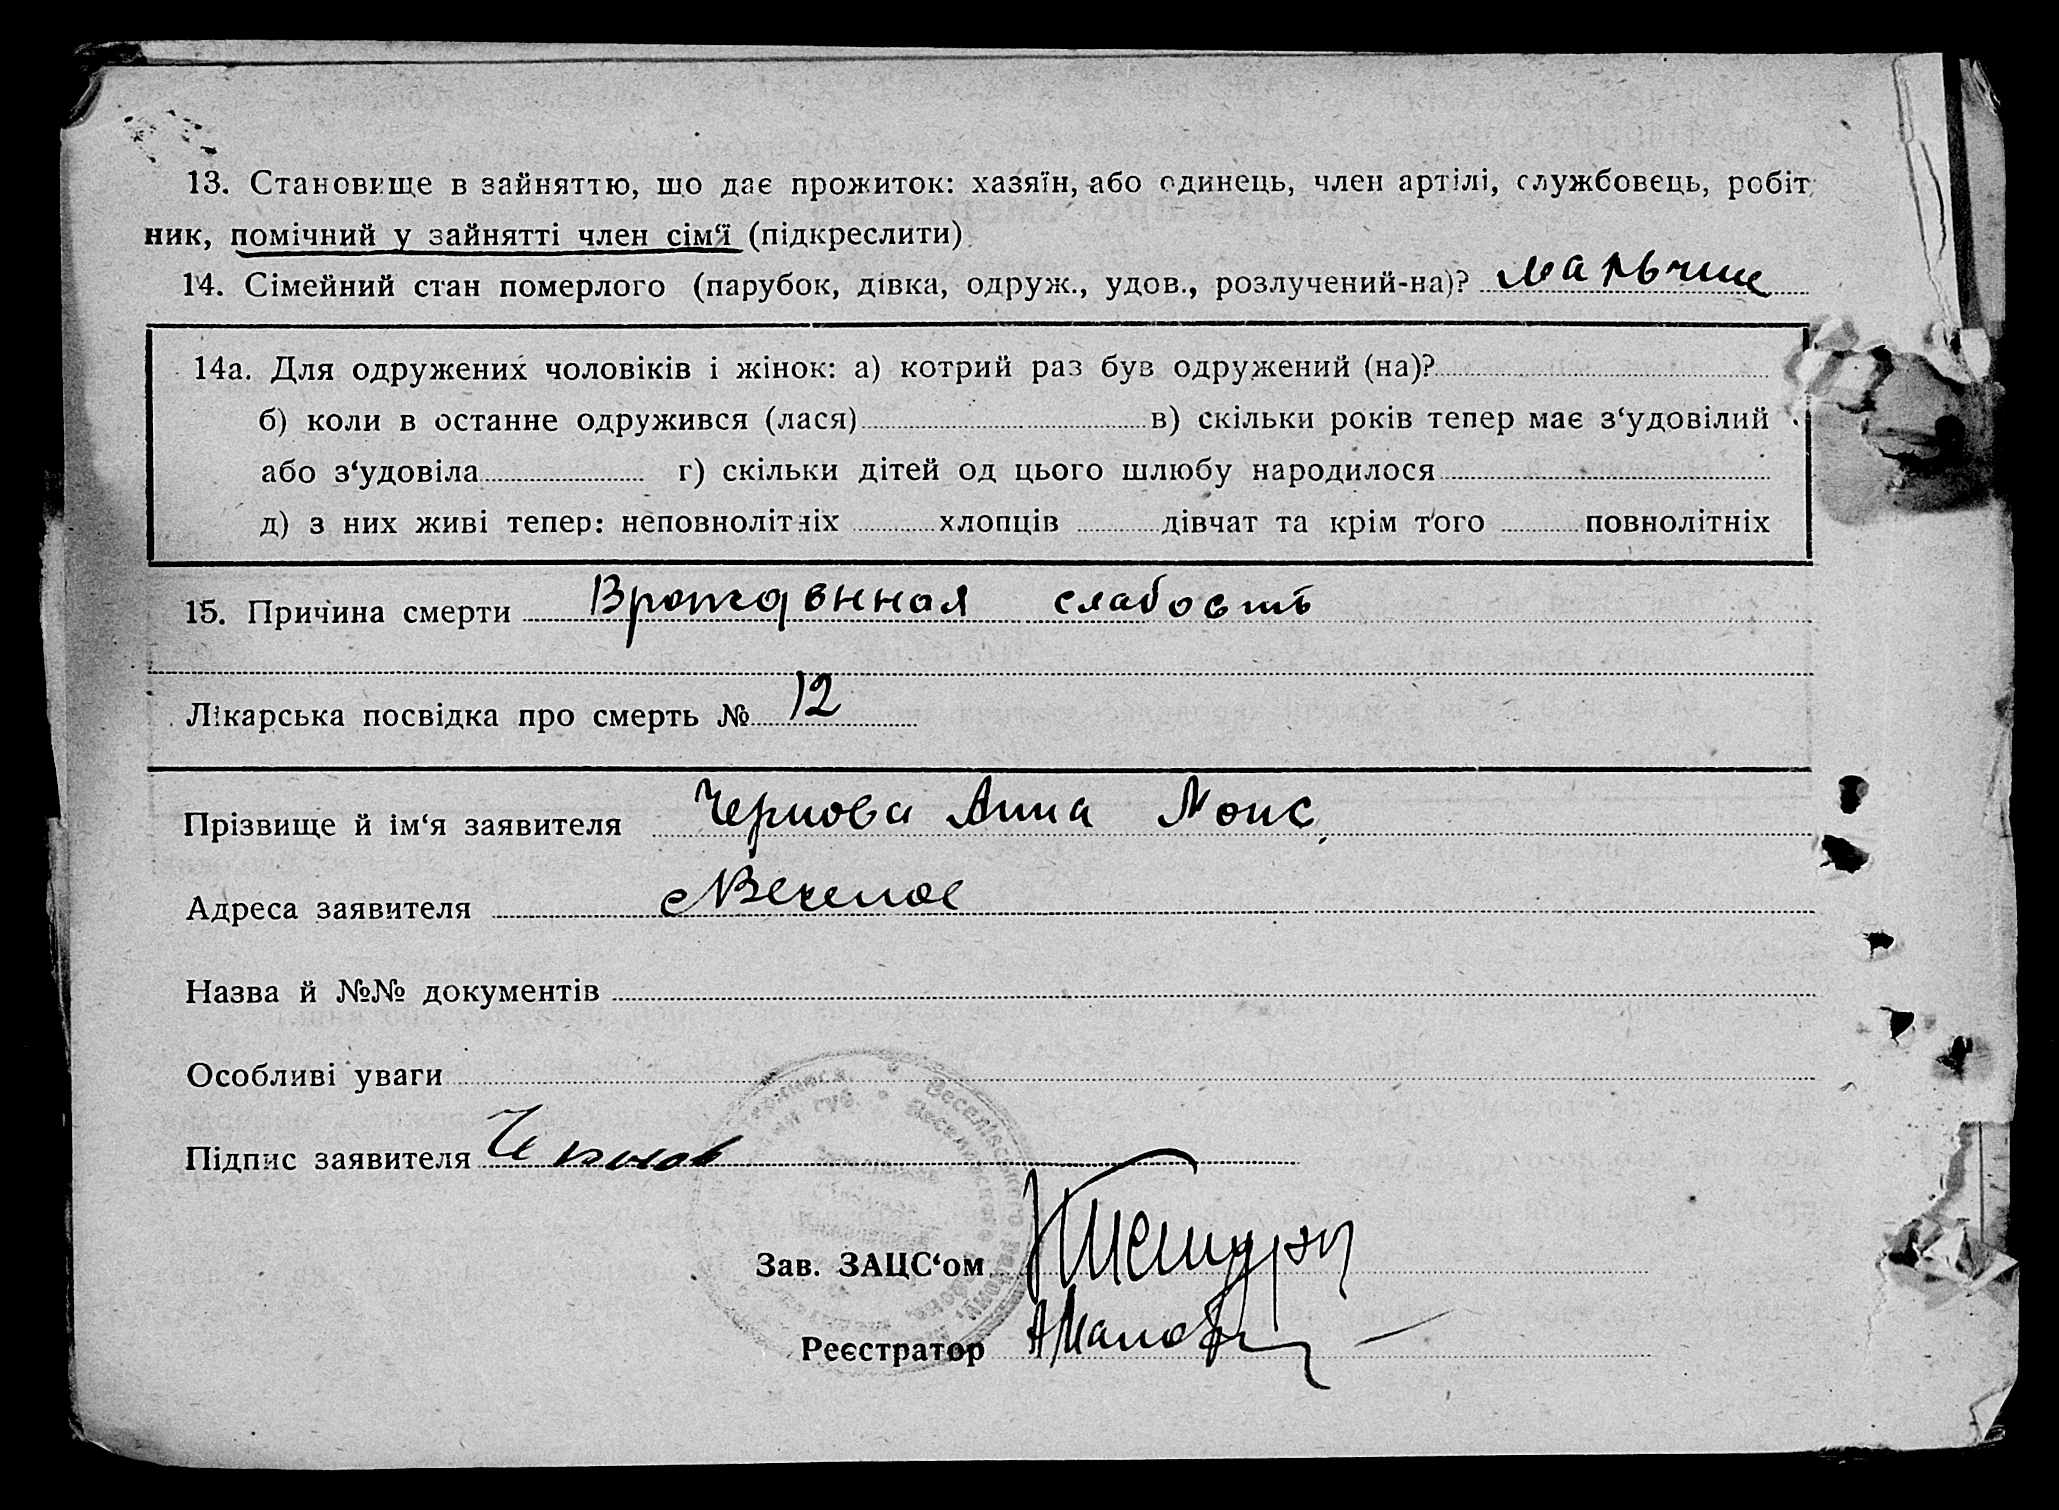 13. Становище в зайняттю, що дає прожиток: хазяїн, або одинець, член артілі, службовець, робіт
ник, помічний у зайнятті член сім‘ї (підкреслити)
14. Сімейний стан померлого (парубок, дівка, одруж., удов., розлучений-на)? мальчик
14а. Для одружених чоловіків і жінок: а) котрий раз був одружений (на)?
б) коли в останне одружився (лася) в) скільки років тепер має з‘удовілий
або з‘удовіла г) скільки дітей од цього шлюбу народилося
д) з них живі тепер: неповнолітніх хлопців дівчат та крім того повнолітніх
15. Причина смерти Врожденная слабость
Лікарська посвідка про смерть № 12
Прізвище й ім‘я заявителя Чернова Анна Моис.
Адреса заявителя
Назва й №№ документів
Особливі уваги
Підпис заявителя Чернов
Веселівського
Зав. ЗАЦС‘ом
Реєстратор